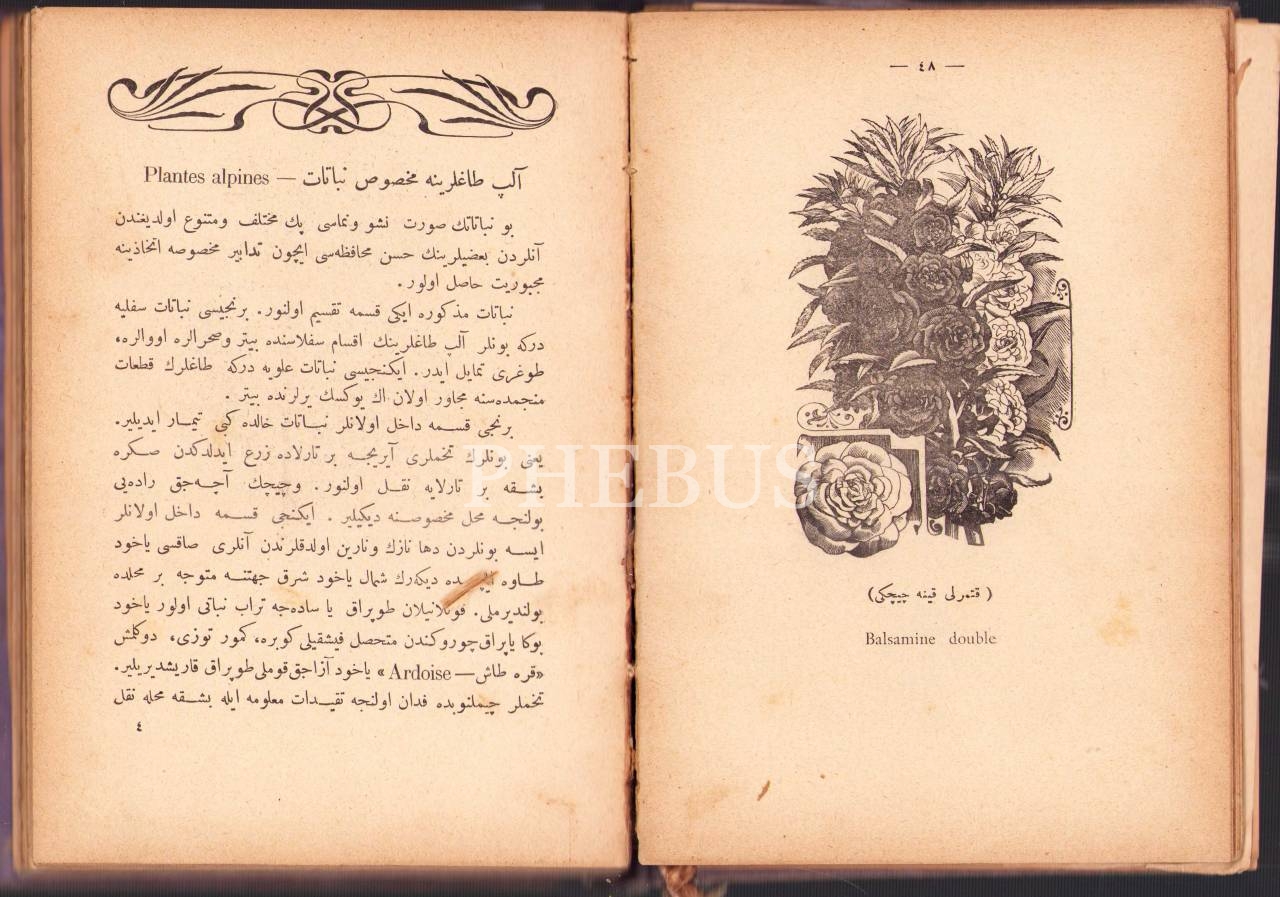 — ٤٨ —
( قتمرلی قینه چیچکی )
Balsamine double
آلپ طاغلرینه مخصوص نباتات — Plantes alpines
بو نباتاتك صورت نشو ونماسی پك مختلف ومتنوع اولدیغندن
آنلردن بعضیلرینك حسن محافظه‌سی ایچون تدابیر مخصوصه اتخاذینه
مجبوریت حاصل اولور .
نباتات مذکوره ایکی قسمه تقسیم اولنور . برنجیسی نباتات سفلیه
درکه بونلر آلپ طاغلرینك اقسام سفلاسنده بیتر وصحرالره اووالره،
طوغری تمایل ایدر . ایکنجیسی نباتات علویه درکه طاغلرك قطعات
منجمده‌سنه مجاور اولان اك یوکسك یرلرنده بیتر .
برنجی قسمه داخل اولانلر نباتات خالده کبی تیمار ایدیلیر.
یعنی بونلرك تخملری آیریجه بر تارلاده زرع ایدلدکدن صکره
بشقه بر تارلایه نقل اولنور . وچیچك آچه‌جق راده‌یی
بولنجه محل مخصوصنه دیکیلیر . ایکنجی قسمه داخل اولانلر
ایسه بونلردن دها نازك ونارین اولدقلرندن آنلری صاقسی یاخود
طاوه دیکه‌رك شمال یاخود شرق جهتنه متوجه بر محلده
بولندیرملی. قوللانیلان طوپراق یا ساده‌جه تراب نباتی اولور یاخود
بوکا یاپراق چوروکندن متحصل فیشقیلی کوبره، کمور توزی، دوکلمش
«قره طاش — Ardoise » یاخود آزاجق قوملی طوپراق قاریشدیریلیر.
تخملر چیملنوبده فدان اولنجه تقیدات معلومه ایله بشقه محله نقل
٤
PHEBUS